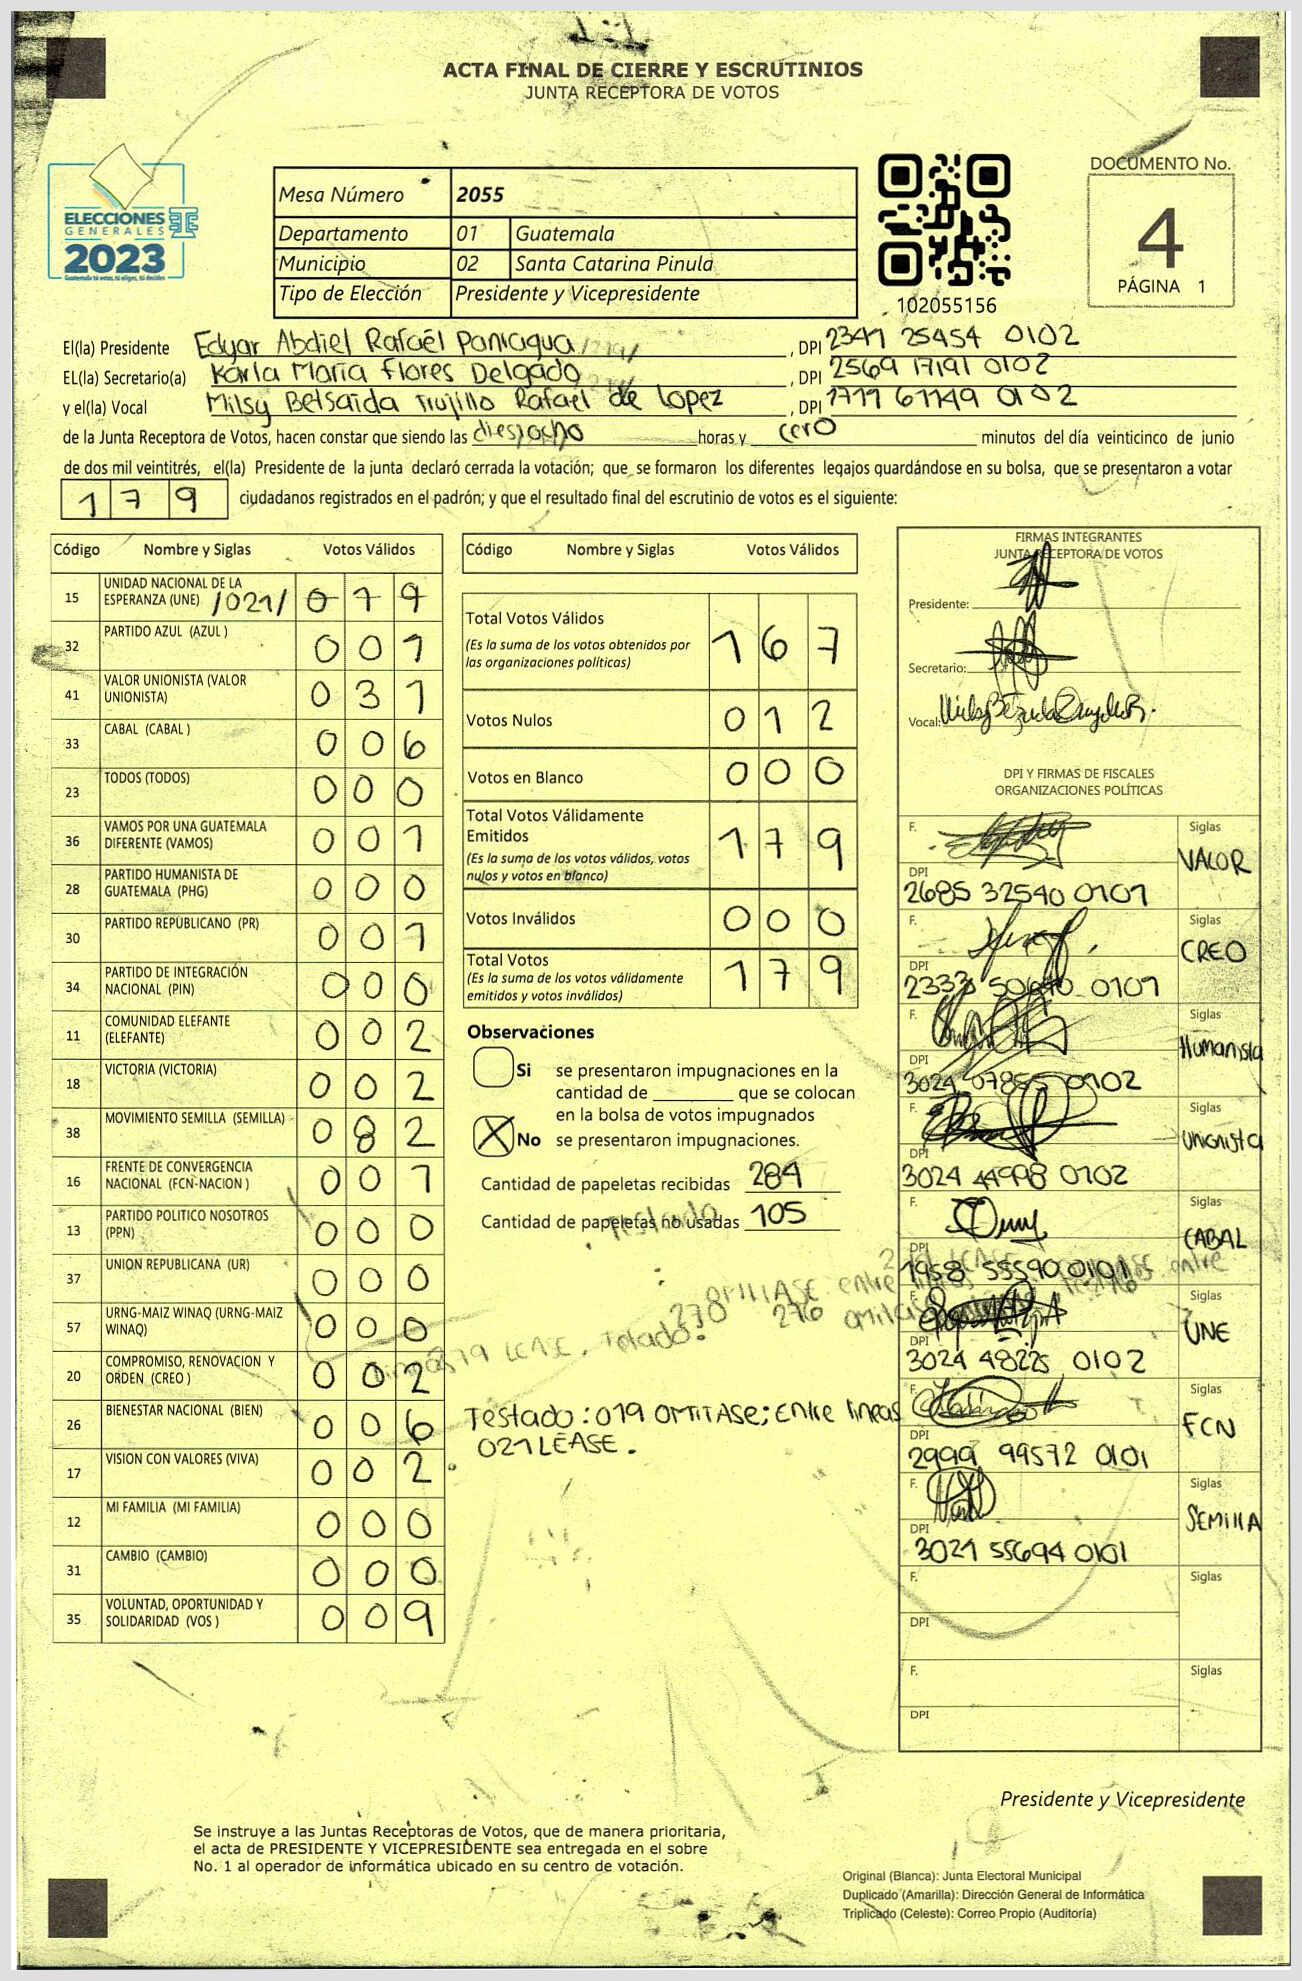 ACTA FINAL DE CIERRE Y ESCRUTINIOS
JUNTA RECEPTORA DE VOTOS
ELECCIONES
GENERALES
2023
Mesa Número 2055
Departamento 01 Guatemala
Municipio 02 Santa Catarina Pinula
Tipo de Elección Presidente y Vicepresidente
102055156
DOCUMENTO No.
4
PÁGINA 1
El(la) Presidente Edgar Abdiel Rafael Paniagua, DPI 2341 25454 0102
EL(la) Secretario(a) Karla María Flores Delgado, DPI 2569 17191 0102
y el(la) Vocal Milsy Betsaida Trujillo Rafael de Lopez, DPI 1711 61149 0102
de la Junta Receptora de Votos, hacen constar que siendo las horas y cero minutos del día veinticinco de junio
de dos mil veintitrés, el(la) Presidente de la junta declaró cerrada la votación; que se formaron los diferentes legajos guardándose en su bolsa, que se presentaron a votar
179 ciudadanos registrados en el padrón; y que el resultado final del escrutinio de votos es el siguiente:
Código Nombre y Siglas Votos Válidos
15 UNIDAD NACIONAL DE LA ESPERANZA (UNE) /021/ 0 1 9
32 PARTIDO AZUL (AZUL ) 0 0 1
41 VALOR UNIONISTA (VALOR UNIONISTA) 0 3 1
33 CABAL (CABAL ) 0 0 6
23 TODOS (TODOS) 0 0 0
36 VAMOS POR UNA GUATEMALA DIFERENTE (VAMOS) 0 0 1
28 PARTIDO HUMANISTA DE GUATEMALA (PHG) 0 0 0
30 PARTIDO REPUBLICANO (PR) 0 0 1
34 PARTIDO DE INTEGRACIÓN NACIONAL (PIN) 0 0 0
11 COMUNIDAD ELEFANTE (ELEFANTE) 0 0 2
18 VICTORIA (VICTORIA) 0 0 2
38 MOVIMIENTO SEMILLA (SEMILLA) 0 8 2
16 FRENTE DE CONVERGENCIA NACIONAL (FCN-NACION ) 0 0 1
13 PARTIDO POLITICO NOSOTROS (PPN) 0 0 0
37 UNION REPUBLICANA (UR) 0 0 0
57 URNG-MAIZ WINAQ (URNG-MAIZ WINAQ) 0 0 0
20 COMPROMISO, RENOVACION Y ORDEN (CREO ) 0 0 2
26 BIENESTAR NACIONAL (BIEN) 0 0 6
17 VISION CON VALORES (VIVA) 0 0 2
12 MI FAMILIA (MI FAMILIA) 0 0 0
31 CAMBIO (CAMBIO) 0 0 0
35 VOLUNTAD, OPORTUNIDAD Y SOLIDARIDAD (VOS ) 0 0 9
Código Nombre y Siglas Votos Válidos
Total Votos Válidos 1 6 7
(Es la suma de los votos obtenidos por
las organizaciones políticas)
Votos Nulos 0 1 2
Votos en Blanco 0 0 0
Total Votos Válidamente
Emitidos 1 7 9
(Es la suma de los votos válidos, votos
nulos y votos en blanco)
Votos Inválidos 0 0 0
Total Votos 1 7 9
(Es la suma de los votos válidamente
emitidos y votos inválidos)
Observaciones
Si se presentaron impugnaciones en la
cantidad de que se colocan
en la bolsa de votos impugnados
X No se presentaron impugnaciones.
Cantidad de papeletas recibidas 284
Cantidad de papeletas no usadas 105
Testado: 019 OMITASE; Entre lineas
021 LEASE.
FIRMAS INTEGRANTES
JUNTA RECEPTORA DE VOTOS
Presidente:
Secretario:
Vocal:
DPI Y FIRMAS DE FISCALES
ORGANIZACIONES POLÍTICAS
F. Siglas VALOR
DPI 2685 32540 0101
F. Siglas CREO
DPI 0101
F. Siglas Humanista
DPI 3024 07855 0102
F. Siglas Unionista
DPI 3024 44998 0102
F. Siglas CABAL
DPI 1958 55590 0101
F. Siglas UNE
DPI 3024 48225 0102
F. Siglas FCN
DPI 2999 99572 0101
F. Siglas SEMILLA
DPI 3021 55694 0101
F. Siglas
DPI
F. Siglas
DPI
Presidente y Vicepresidente
Se instruye a las Juntas Receptoras de Votos, que de manera prioritaria,
el acta de PRESIDENTE Y VICEPRESIDENTE sea entregada en el sobre
No. 1 al operador de informática ubicado en su centro de votación.
Original (Blanca): Junta Electoral Municipal
Duplicado (Amarilla): Dirección General de Informática
Triplicado (Celeste): Correo Propio (Auditoría)